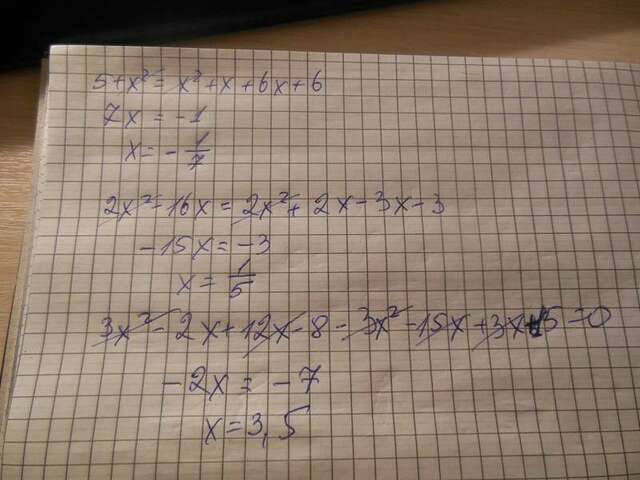 5+x²=x²+x+6x+6
7x = -1
x = - 1/7
2x²-16x = 2x²+2x-3x-3
-15x = -3
x = 1/5
3x²-2x+12x-8-3x²-15x+3x+15=0
-2x = -7
x = 3,5